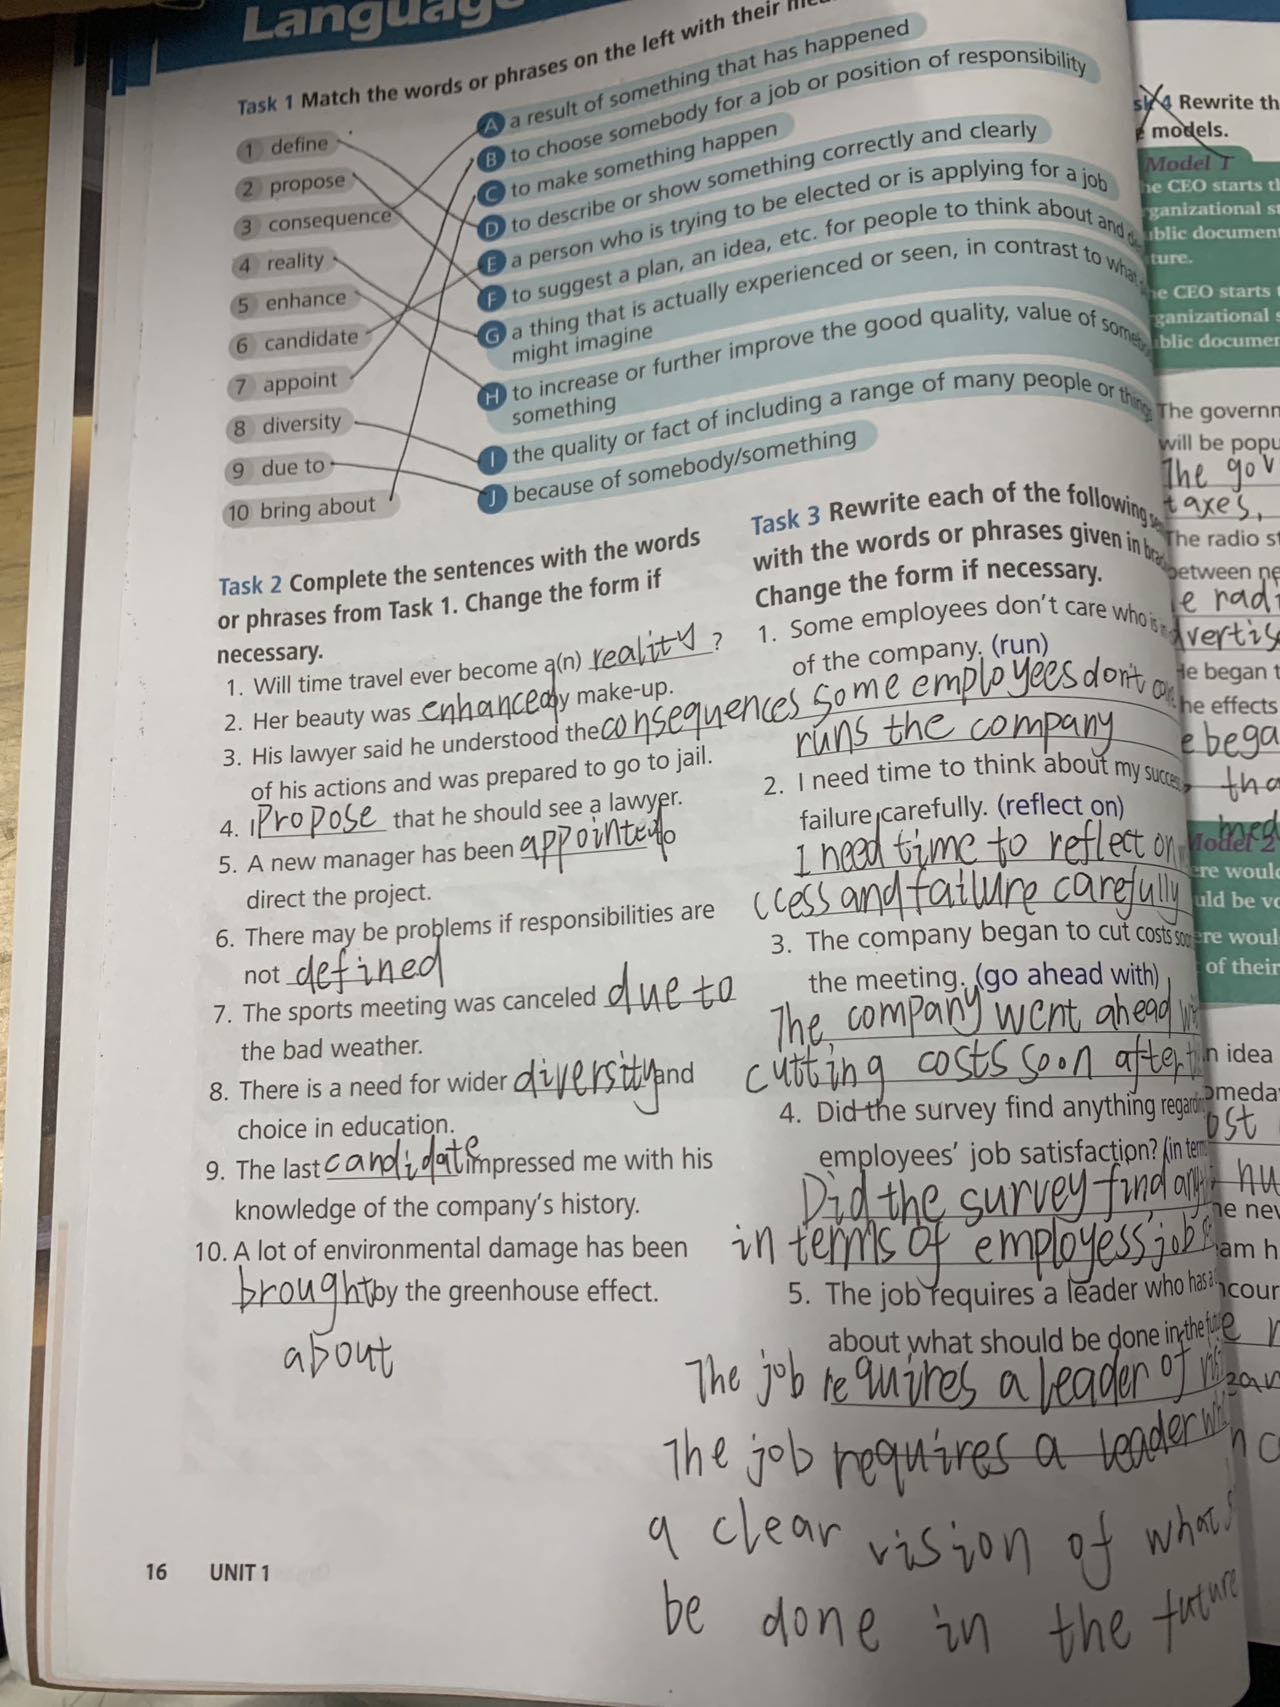 Language
Task 1 Match the words or phrases on the left with their
1 define
2 propose
3 consequence
4 reality
5 enhance
6 candidate
7 appoint
8 diversity
9 due to
10 bring about
A a result of something that has happened
B to choose somebody for a job or position of responsibility
C to make something happen
D to describe or show something correctly and clearly
E a person who is trying to be elected or is applying for a job
F to suggest a plan, an idea, etc. for people to think about and
G a thing that is actually experienced or seen, in contrast to what
might imagine
H to increase or further improve the good quality, value of
something
I the quality or fact of including a range of many people or
J because of somebody/something
Task 2 Complete the sentences with the words
or phrases from Task 1. Change the form if
necessary.
1. Will time travel ever become a(n) reality ?
2. Her beauty was enhanced by make-up.
3. His lawyer said he understood the consequences
of his actions and was prepared to go to jail.
4. I propose that he should see a lawyer.
5. A new manager has been appointed to
direct the project.
6. There may be problems if responsibilities are
not defined
7. The sports meeting was canceled due to
the bad weather.
8. There is a need for wider diversity and
choice in education.
9. The last candidate impressed me with his
knowledge of the company's history.
10. A lot of environmental damage has been
brought by the greenhouse effect.
about
16 UNIT 1
Task 3 Rewrite each of the following
with the words or phrases given in
Change the form if necessary.
1. Some employees don't care who is
of the company. (run)
Some employees don't
runs the company
2. I need time to think about my
failure carefully. (reflect on)
I need time to reflect on
ccess and failure carefully
3. The company began to cut costs
the meeting. (go ahead with)
The company went ahead
cutting costs soon after
4. Did the survey find anything
employees' job satisfaction? (in
Did the survey find
in terms of employess' job
5. The job requires a leader who has a
about what should be done in the
The job requires a leader of
The job requires a leader
a clear vision of what
be done in the future
4 Rewrite
models.
Model 1
CEO starts
document
ture.
CEO starts
The governm
will be popu
The gov
taxes,
The radio
between
e radi
began
the effects
bega
Model 2
would
would
of their
idea